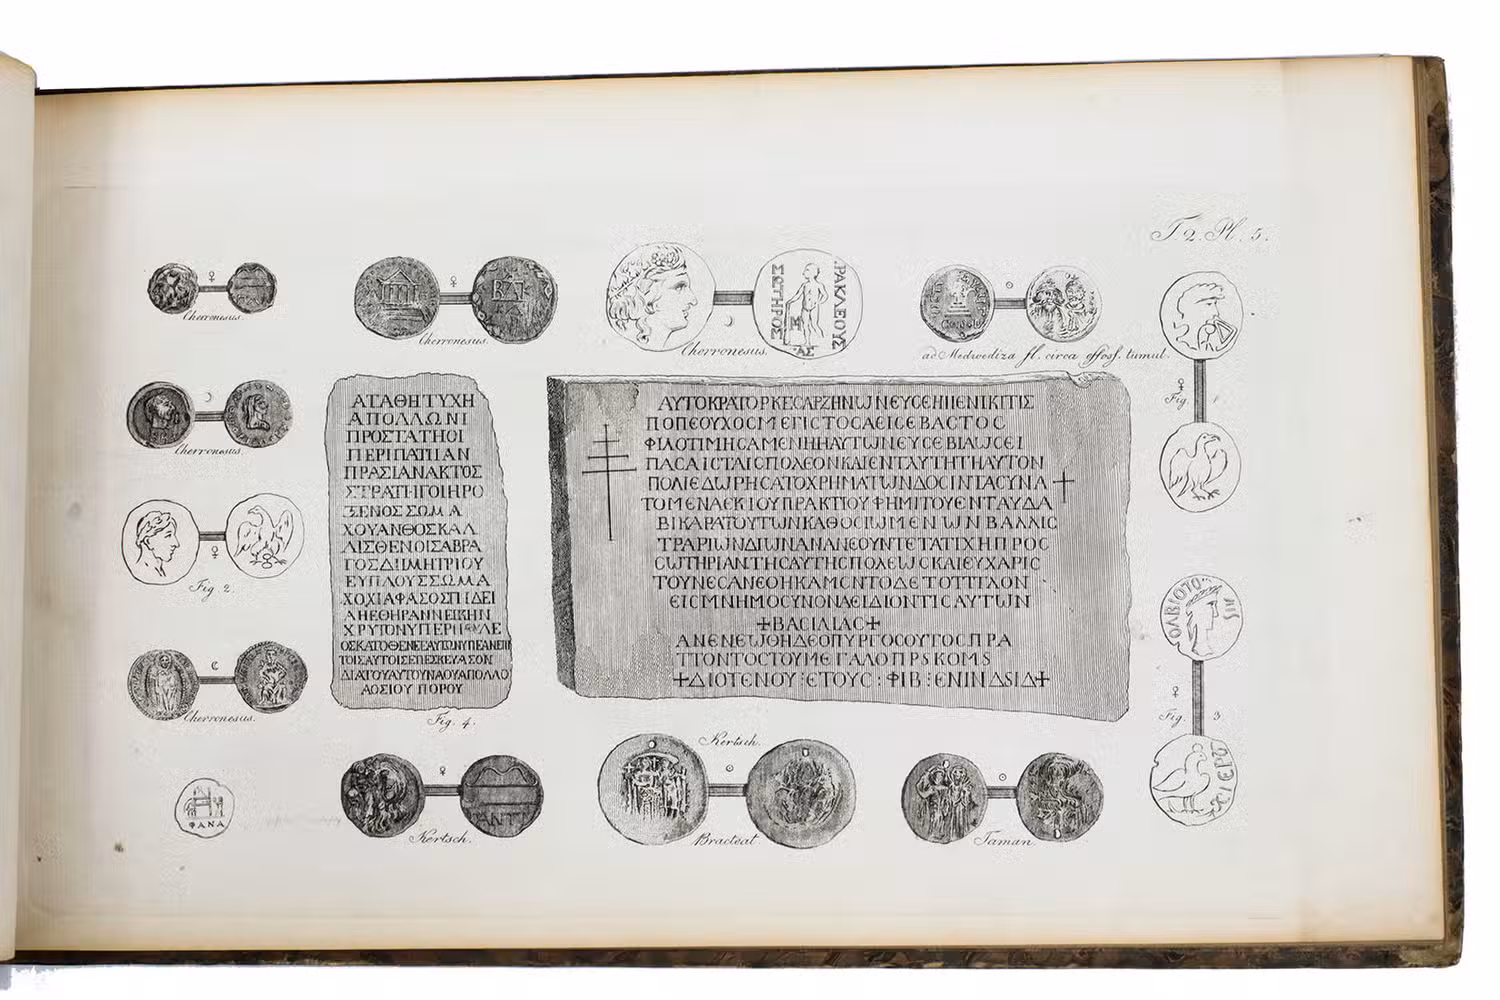 T. 2. Pl. 5.
Cherronesus.
Cherronesus.
ΣΩΤΗΡΟΣ
ΡΑΚΛΕΟΥΣ
Cherronesus.
ad Medwediza fl. circa effoss. tumul.
Fig. 1
Cherronesus.
Fig. 2.
Cherronesus.
ΦΑΝΑ
ΑΓΑΘΗΤΥΧΗ
ΑΠΟΛΛΩΝΙ
ΠΡΟΣΤΑΤΗΟΙ
ΠΕΡΙΠΑΠΙΑΝ
ΠΡΑΣΙΑΝΑΚΤΟΣ
ΣΤΡΑΤΗΓΟΙΗΡΟ
ΞΕΝΟΣΣΩΜΑ
ΧΟΥΑΝΘΟΣΚΑΛ
ΛΙΣΘΕΝΟΙΣΑΒΡΑ
ΓΟΣΔΗΜΗΤΡΙΟΥ
ΕΥΠΛΟΥΣΣΩΜΑ
ΧΟΧΙΑΦΑΣΟΣΠΙΔΕΙ
ΔΙΑΤΟΥΑΥΤΟΥΝΑΟΥΑΠΟΛΛΟ
ΑΟΣΙΟΥ ΠΟΡΟΥ
Fig. 4.
ΑΥΤΟΚΡΑΤΟΡΚΕϹΑΡΖΗΝΩΝΕΥϹΕΗΙΕΝΙΚΙΤΙϹ
ΠΟΠΕΟΥΧΟϹΜΕΓΙϹΤΟϹΑΕΙϹΕΒΑϹΤΟϹ
ΦΙΛΟΤΙΜΗϹΑΜΕΝΗΗΑΥΤΩΝΕΥϹΕΒΙΑΩϹΕΙ
ΠΑϹΑΙϹΤΑΙϹΠΟΛΕΟΝΚΑΙΕΝΤΑΥΤΗΤΗΑΥΤΟΝ
ΠΟΛΙΕΔΩΡΗϹΑΤΟΧΡΗΜΑΤΩΝΔΟϹΙΝΤΑϹΥΝΑ
ΤΟΜΕΝΑΕΚΙΟΥΠΡΑΚΤΙΟΥΦΗΜΙΤΟΥΕΝΤΑΥΔΑ
ΒΙΚΑΡΑΤΟΥΤΩΝΚΑΘΟϹΙΩΜΕΝΩΝΒΑΛΛΙϹ
ΤΡΑΡΙΩΝΔΙΩΝΑΝΑΝΕΟΥΝΤΕΤΑΤΙΧΗΠΡΟϹ
ϹΩΤΗΡΙΑΝΤΗϹΑΥΤΗϹΠΟΛΕΩϹΚΑΙΕΥΧΑΡΙϹ
ΤΟΥΝΕϹΑΝΕΘΗΚΑΜΕΝΤΟΔΕΤΟΤΙΤΛΟΝ
ΕΙϹΜΝΗΜΟϹΥΝΟΝΑΕΙΔΙΟΝΤΙϹΑΥΤΩΝ
✝ΒΑϹΙΛΙΑϹ✝
ΑΝΕΝΕΩΘΗΔΕΟΠΥΡΓΟϹΟΥΤΟϹΠΡΑ
ΤΤΟΝΤΟϹΤΟΥΜΕΓΑΛΟΠΡSΚΟΜS
✝ΔΙΟΓΕΝΟΥ:ΕΤΟΥϹ:ΦΙΒ:ΕΝΙΝΔSΙΔ✝
ΟΛΒΙΟΠΟ
Fig. 3
Kertsch.
Kertsch.
Bracteat.
Taman.